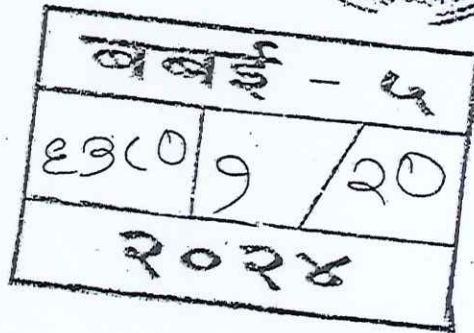 बबई - ५
६३८० १ / २०
२०२४